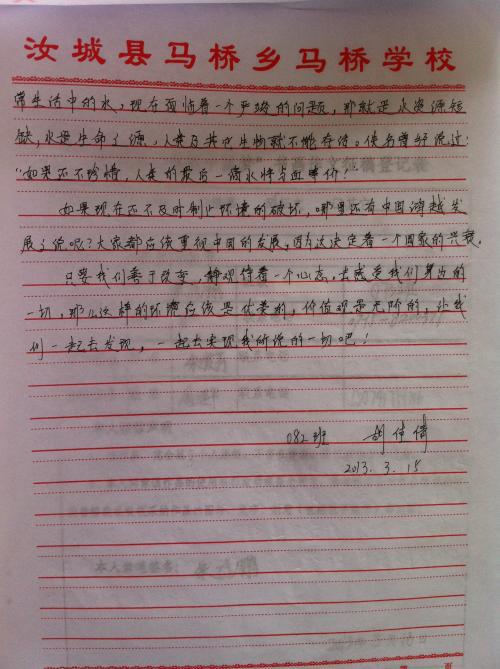 汝城县马桥乡马桥学校
常生活中的水，现在面临着一个严峻的问题，那就是水资源短
缺，水是生命之源，人类及其它生物就不能存活。使名曾经说过：
“如果还不珍惜，人类的最后一滴水将与血等价！”
如果现在还不及时制止环境的破坏，哪里还有中国鸿越发
展之说呢？大家都应该重视中国的发展，因为这决定着一个国家的兴衰。
只要我们善于改变，静观侍着一个心态，去感受我们身边的
一切，那么这样的环境应该是优美的，价值观是无价的，让我
们一起去发现，一起去实现我所说的一切吧！
082班 胡倩
2013.3.15